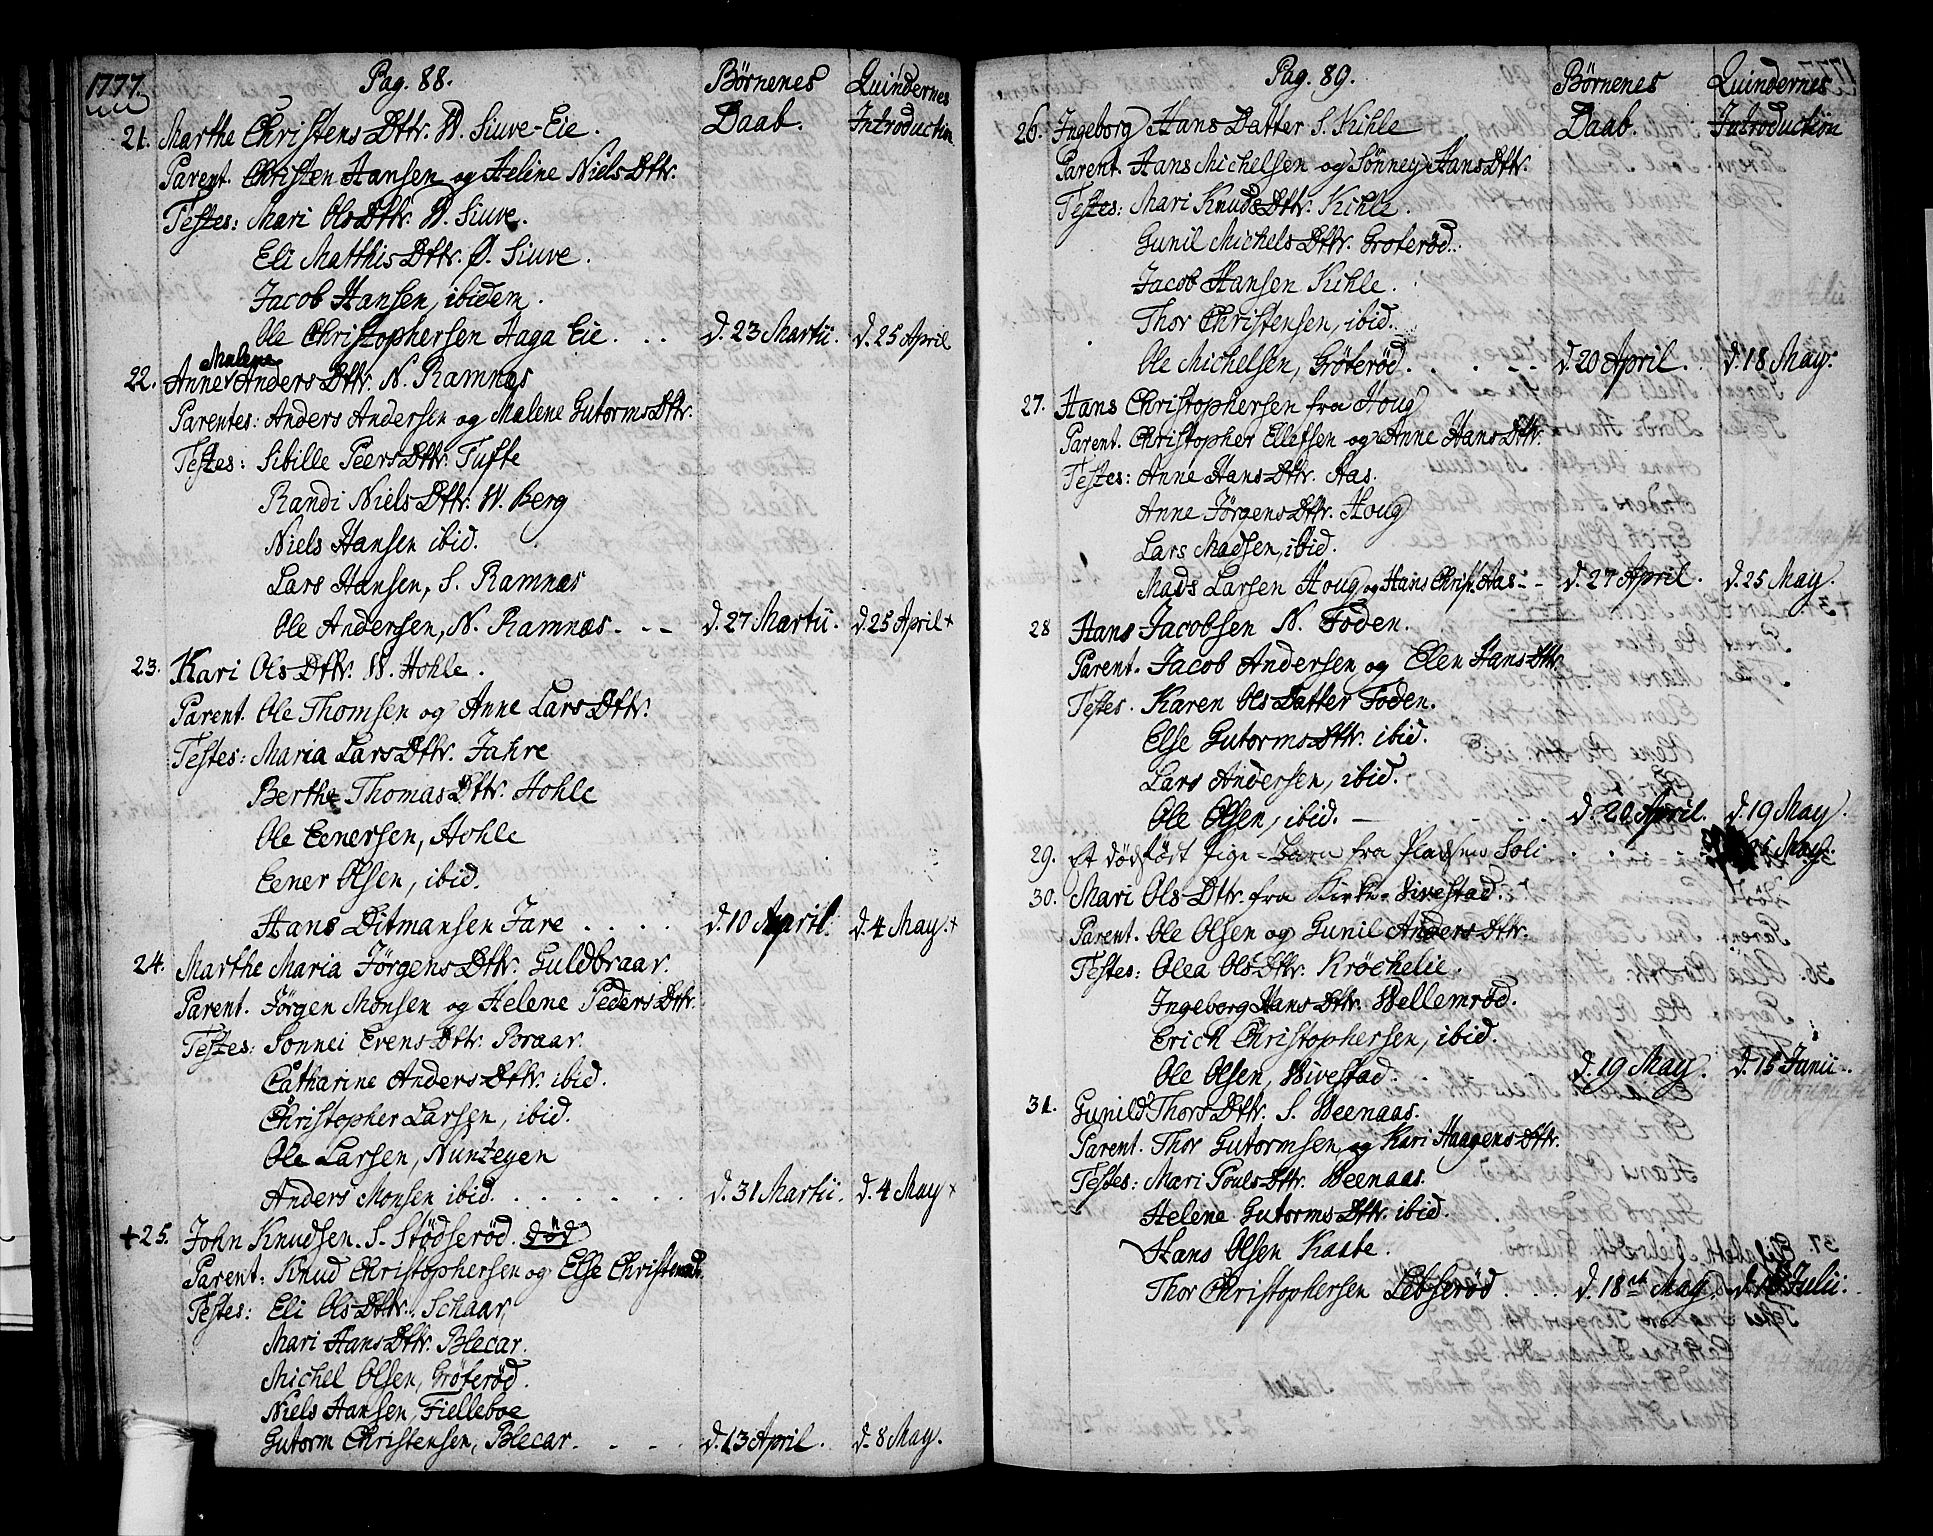 1777.
Pag. 88. Börnenes Quindernes
Daab. Introduction
21. Marthe Christens Dttr. W. Siuve-Eie.
Parent. Christen Hansen og Heline Niels Dttr.
Testes: Mari Ols Dttr. W. Siuve.
Eli Matthis Dttr. Ø. Siuve.
Jacob Hansen, ibidem.
Ole Christophersen Haga Eie . . . d. 23 Martii. d. 25 April
Malene
22. Anne Anders Dttr. N. Ramnæs
Parentes: Anders Andersen og Malene Gutorms Dttr.
Testes: Sibille Peers Dttr. Tuffte
Randi Niels Dttr. W. Berg
Niels Hansen ibid.
Lars Hansen, S. Ramnæs
Ole Andersen, N. Ramnæs. - - d. 27 Martii. d. 25 April +
23. Kari Ols Dttr. W. Hohle.
Parent. Ole Thomsen og Anne Lars Dttr.
Testes: Maria Lars Dttr. Jahre
Berthe Thomas Dttr. Hohle
Ole Eenersen, Hohle
Eener Olsen, ibid.
Hans Ditmansen Jare . . . . d. 10 April. d. 4 May. +
24. Marthe Maria Jörgens Dttr. Guldbraar.
Parent. Jörgen Monsen og Helene Peders Dttr.
Testes: Sonnei Evens Dttr. Braar.
Catharine Anders Dttr. ibid.
Christopher Larsen, ibid.
Ole Larsen, Nuntegen
Anders Monsen ibid. . . . . . . d. 31 Martii. d. 4 May +
+ 25. John Knudsen. S. Stödseröd. död
Parent: Knud Christophersen og Else Christensd.
Testes: Eli Ols Dttr. Schaar,
Mari Hans Dttr. Blecar.
Michel Olsen, Gröteröd.
Niels Hansen, Fielleboe
Gutorm Christensen, Blecar. - - - d. 13 April. d. 8 May.
Pag. 89. Börnenes Quindernes
Daab. Introduction
26. Ingeborg Hans Datter S. Kihle
Parent. Hans Michelsen og Sönney Hans Dttr.
Testes: Mari Knuds Dttr. Kihle.
Gunil Michels Dttr. Groteröd.
Jacob Hansen Kihle.
Thor Christensen, ibid.
Ole Michelsen, Gröteröd. . . - - d. 20 April. d. 18 May.
27. Hans Christophersen fra Houg
Parent. Christopher Ellefsen og Anne Hans Dttr.
Testes: Anne Hans Dttr. Aas.
Anne Jörgens Dttr. Houg
Lars Madsen, ibid.
Mads Larsen Houg og Hans Christ. Aas - - d. 27 April. d. 25 May.
28 Hans Jacobsen N. Foden.
Parent. Jacob Andersen og Elen Hans Dttr.
Testes. Karen Ols Datter Foden.
Else Gutorms Dttr. ibid.
Lars Andersen, ibid.
Ole Olsen, ibid. - - - - d. 20 April. d. 19 May.
29. Et dödfödt Pige-Barn fra Pladsen Soli . . . . May.
30. Mari Ols Dttr. fra Kirke-Vivestad.
Parent. Ole Olsen og Gunil Anders Dttr.
Testes: Olea Ols Dttr. Kröchelie.
Ingeborg Hans Dttr. Wellemröd.
Erich Christophersen, ibid.
Ole Olsen, Wivestad. . . . d. 19 May. d. 15 Junii.
31. Gunild Thors Dttr. S. Weenaas.
Parent. Thor Gutormsen og Kari Haagens Dttr.
Testes: Mari Pouls Dttr. Weenaas.
Helene Gutorms Dttr. ibid.
Hans Olsen Kaabe.
Thor Christophersen Lebseröd . . d. 18 May. d. Julii.